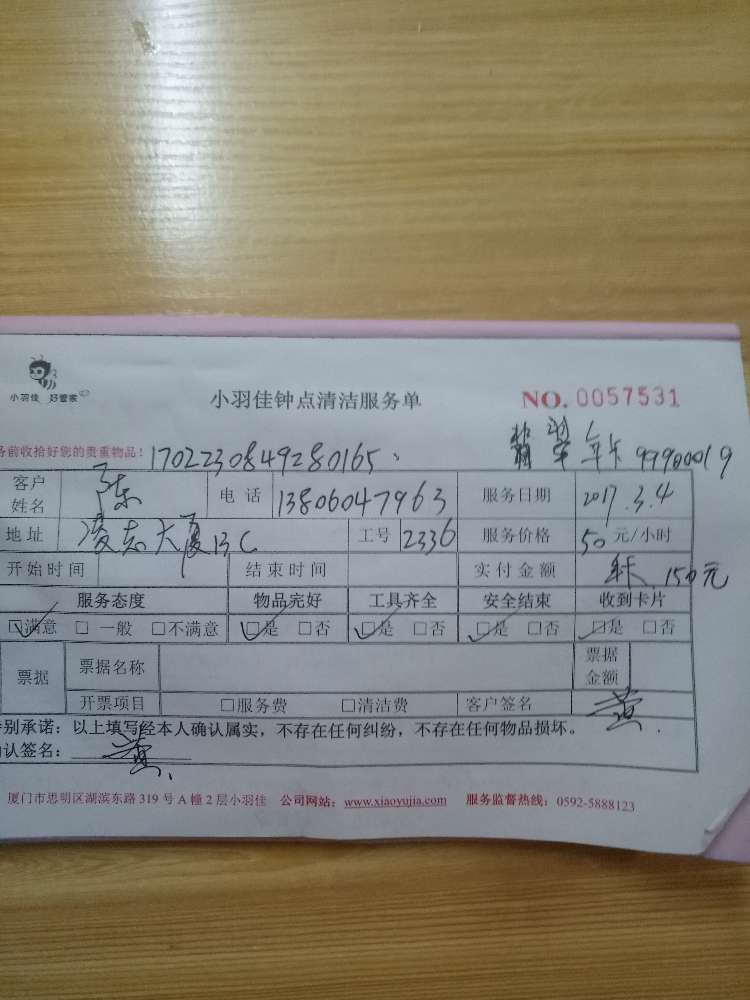 小羽佳 好管家
小羽佳钟点清洁服务单
NO. 0057531
务前收拾好您的贵重物品! 1702230849280165
翡翠年卡 99900019
客户姓名 陈 电话 13806047963 服务日期 2017.3.4
地址 凌志大厦13C 工号 2336 服务价格 50 元/小时
开始时间 结束时间 实付金额 年卡, 150元
服务态度 物品完好 工具齐全 安全结束 收到卡片
☑满意 □一般 □不满意 ☑是 □否 ☑是 □否 ☑是 □否 ☑是 □否
票据 票据名称 票据金额
开票项目 □服务费 □清洁费 客户签名 黄
特别承诺:以上填写经本人确认属实,不存在任何纠纷,不存在任何物品损坏。
确认签名: 黄
厦门市思明区湖滨东路 319 号 A 幢 2 层小羽佳 公司网站: www.xiaoyujia.com 服务监督热线: 0592-5888123